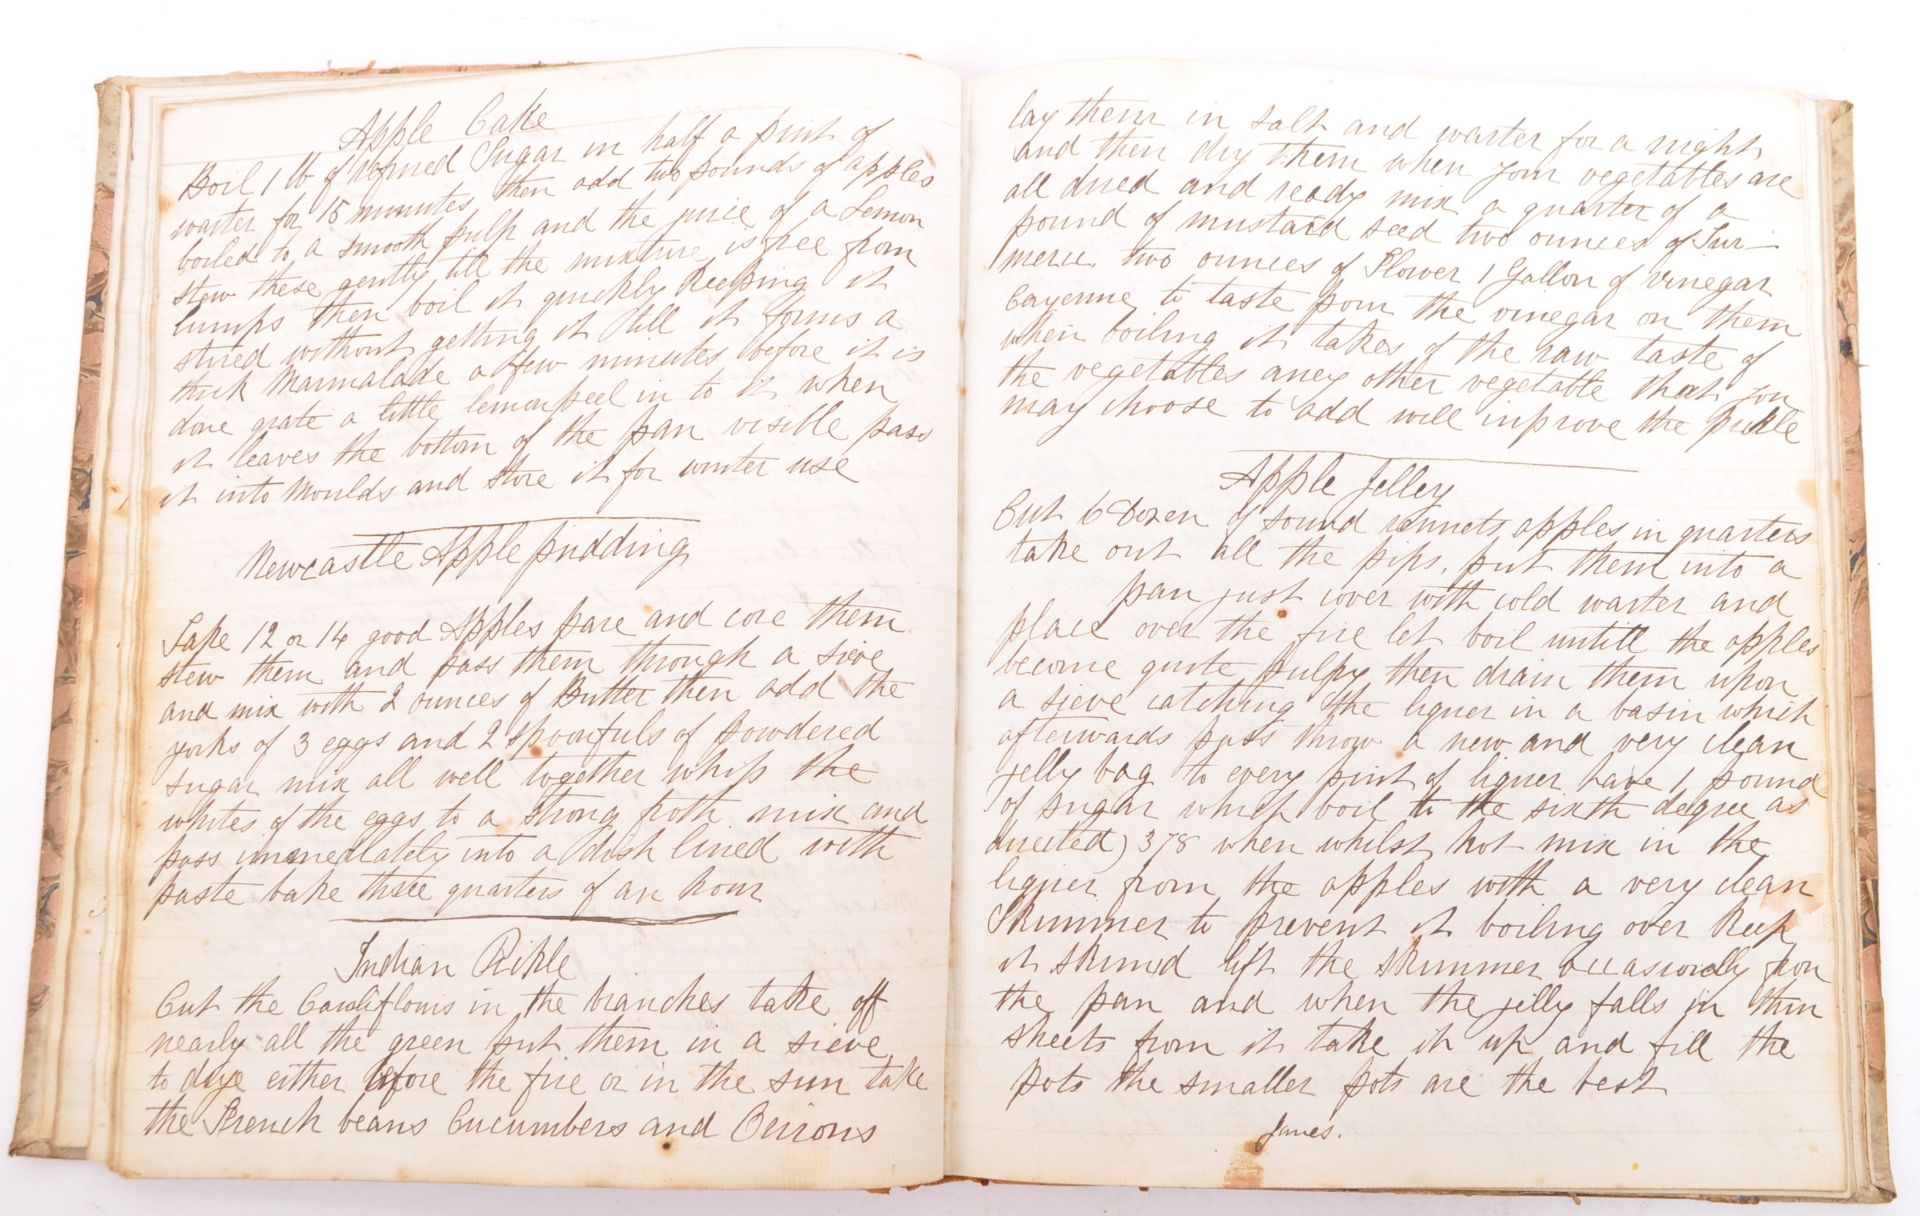 Apple Cake
Boil 1 lb of refined Sugar in half a pint of
warter for 15 minutes then add two pounds of apples
boiled to a smooth pulp and the juice of a Lemon
stew these gently till the mixture is free from
lumps then boil it quickly keeping it
stired without getting it till it forms a
thick Marmalade a few minutes before it is
done grate a little lemon peel in to it when
it leaves the bottom of the pan visible pass
it into Moulds and store it for winter use
Newcastle Apple pudding
Take 12 or 14 good Apples pare and core them
stew them and pass them through a sieve
and mix with 2 ounces of Butter then add the
yorks of 3 eggs and 2 spoonfuls of powdered
sugar mix all well together whip the
whites of the eggs to a strong froth mix and
pass immediately into a dish lined with
paste bake three quarters of an hour
Indian Pikle
Cut the Cauliflouis in the branches take off
nearly all the green put them in a sieve
to drye either before the fire or in the sun take
the French beans Cucumbers and Onions
lay them in salt and warter for a night
and then dry them when your vegetables are
all dried and ready mix a quarter of a
pound of mustard seed two ounces of Tur-
meric two ounces of Flower 1 Gallon of vinegar
Cayenne to taste pour the vinegar on them
when boiling it takes of the raw taste of
the vegetables aney other vegetable that you
may choose to add will inprove the pickle
Apple Jelley
Cut 6 Dozen of sound rennets apples in quarters
take out all the pips, put them into a
pan just cover with cold warter and
place over the fire let boil untill the apples
become quite pulpy then drain them upon
a sieve catching the liquer in a basin which
afterwards pass throw a new and very clean
jelly bag to every pint of liquer have 1 pound
of sugar which boil to the sixth degree as
directed) 378 when whilst hot mix in the
liquer from the apples with a very clean
Skimmer to prevent it boiling over keep
it skimed lift the skimmer occasionelly from
the pan and when the jelly falls in thin
sheets from it take it up and fill the
pots the smaller pots are the best